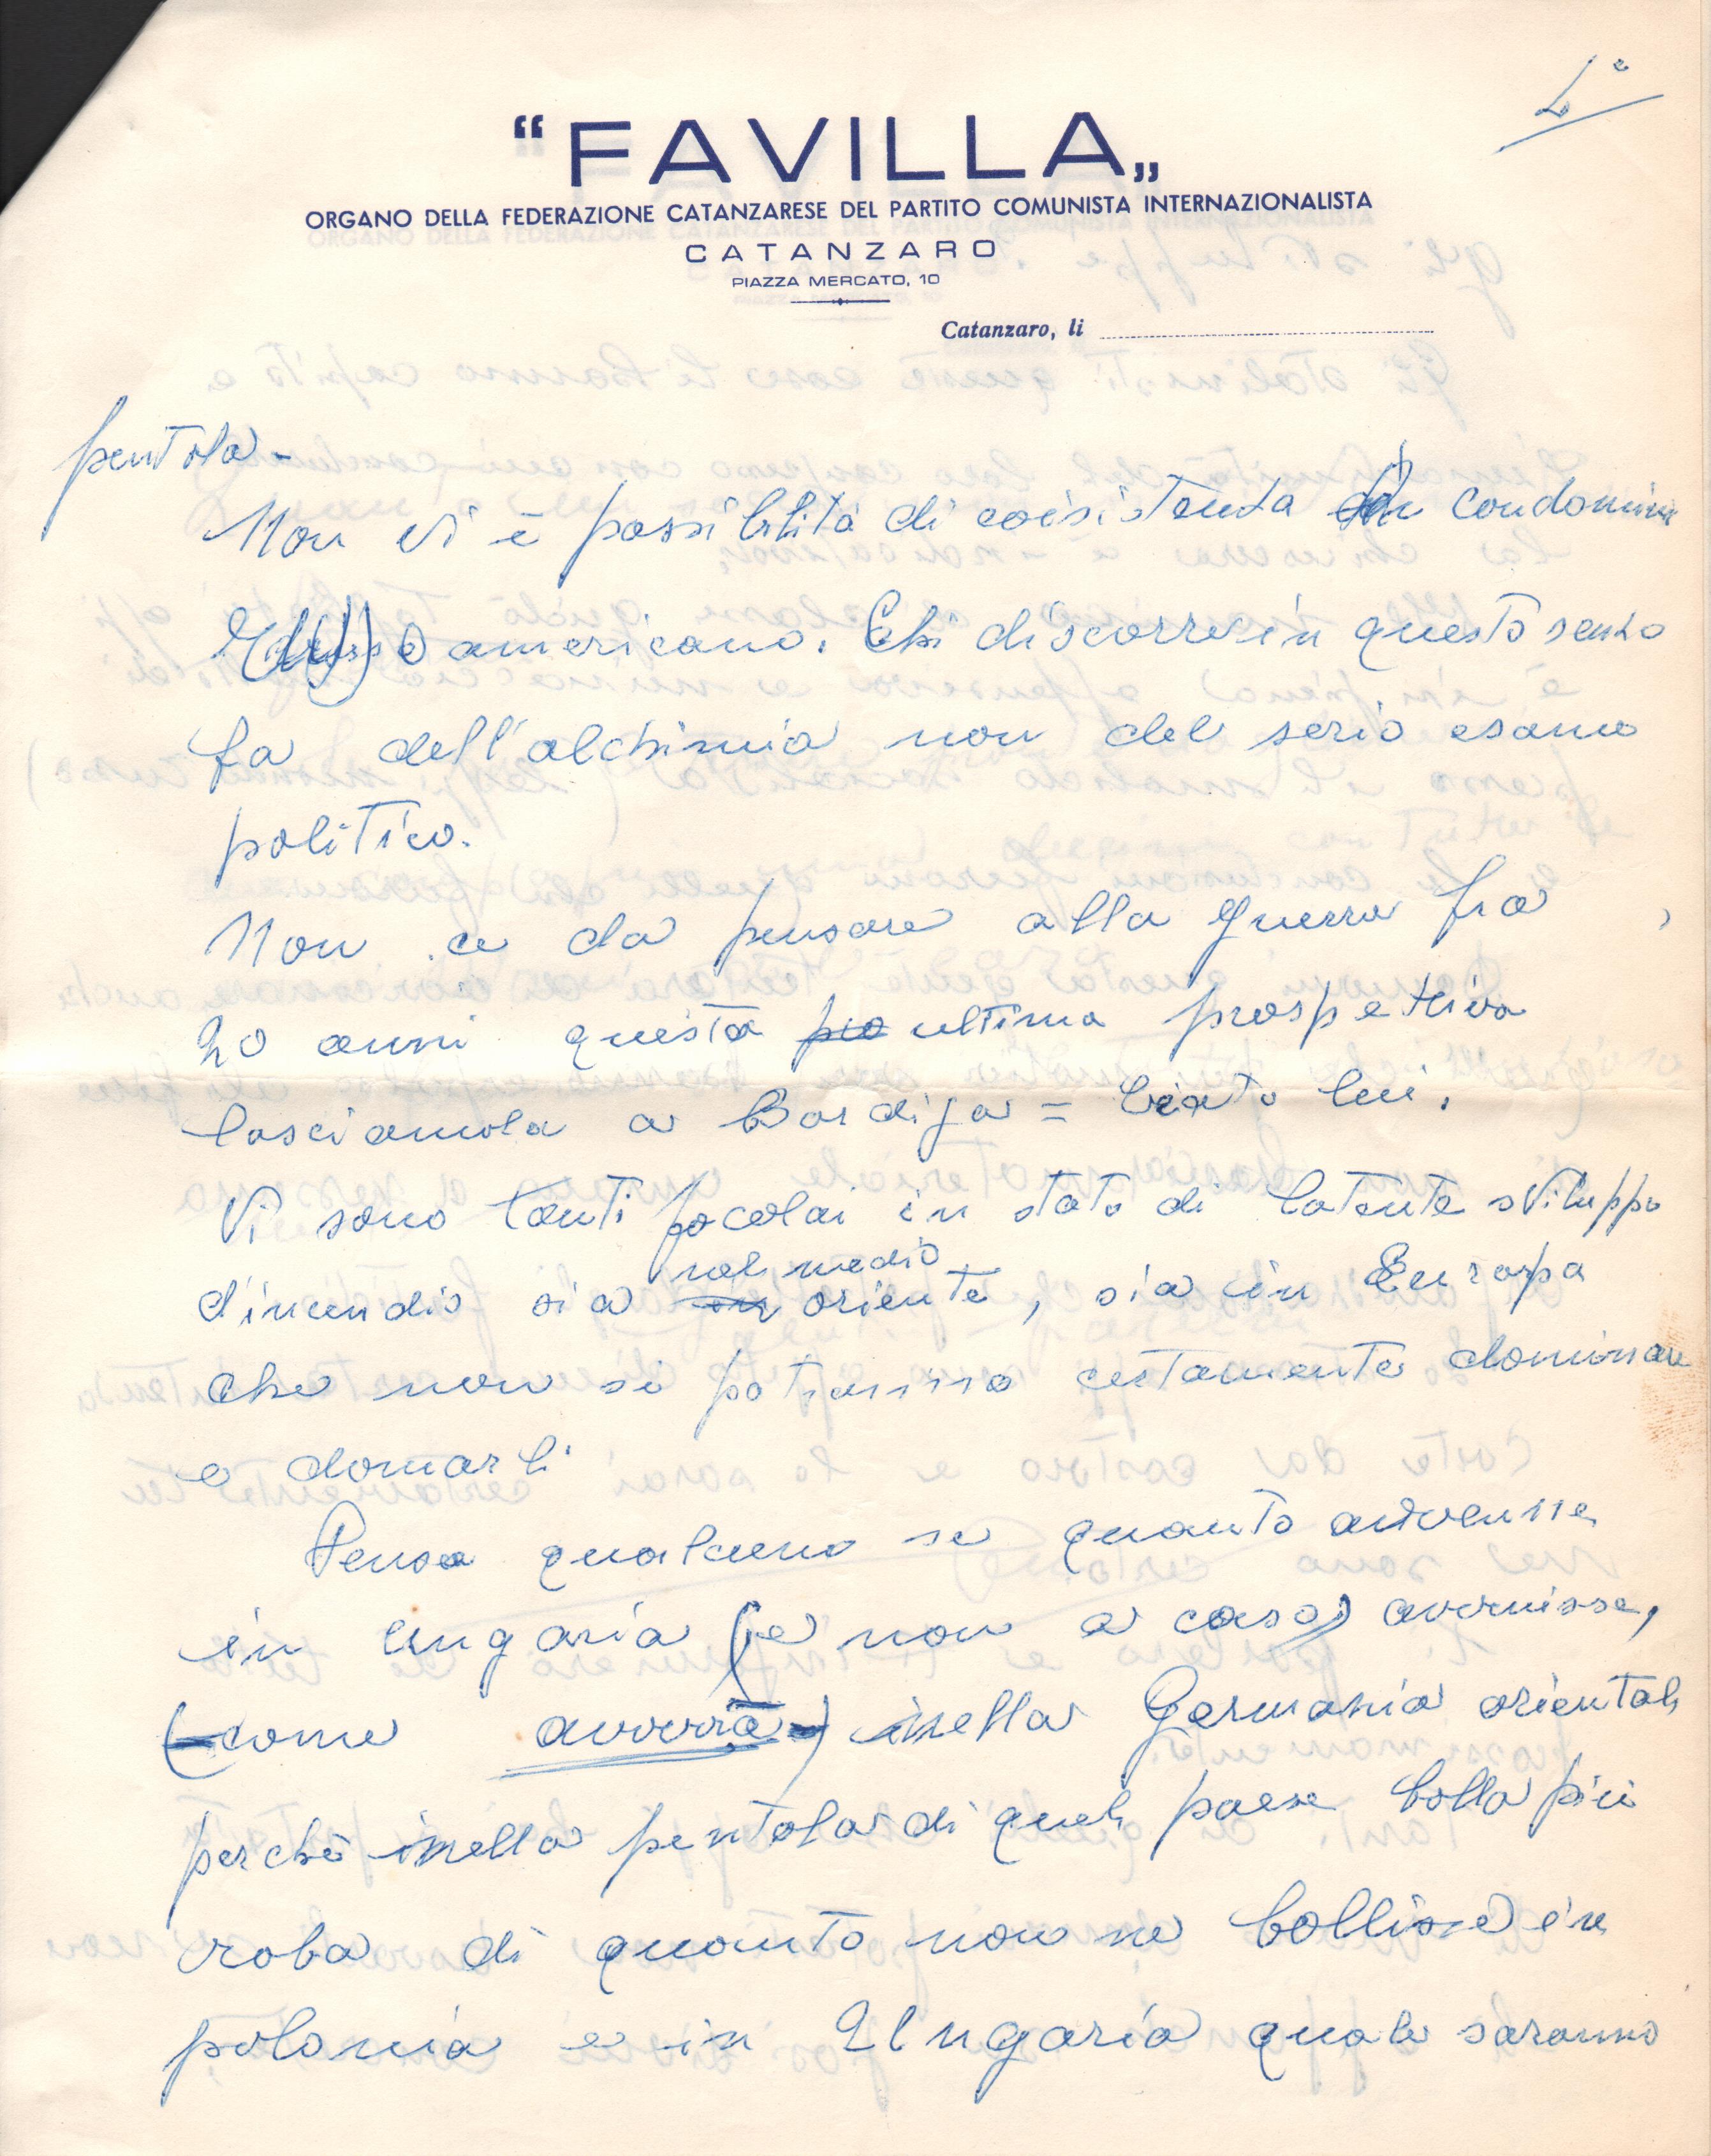 “FAVILLA„
ORGANO DELLA FEDERAZIONE CATANZARESE DEL PARTITO COMUNISTA INTERNAZIONALISTA
CATANZARO
PIAZZA MERCATO, 10
Catanzaro, li
pentola -
Non vi è possibilità di coisistenza condominio
americano. Chi discorre in questo senso
fa dell'alchimia non del serio esame
politico.
Non ce da pensare alla guerra fra
20 anni questa ultima prospettiva
lasciamola a Bordiga = beato lui.
Vi sono tanti focolai in stato di latente sviluppo
nel medio
d'incendio sia oriente, sia in Europa
che non si potranno certamente dominare
e domarli
Pensa qualcuno se quanto avvenne
in Ungaria (e non a caso) avvenisse,
(come avverrà) nella Germania orientale
perchè nella pentola di quel paese bolle più
roba di quanto non ne bollisse in
polonia e in Ungaria quale saranno